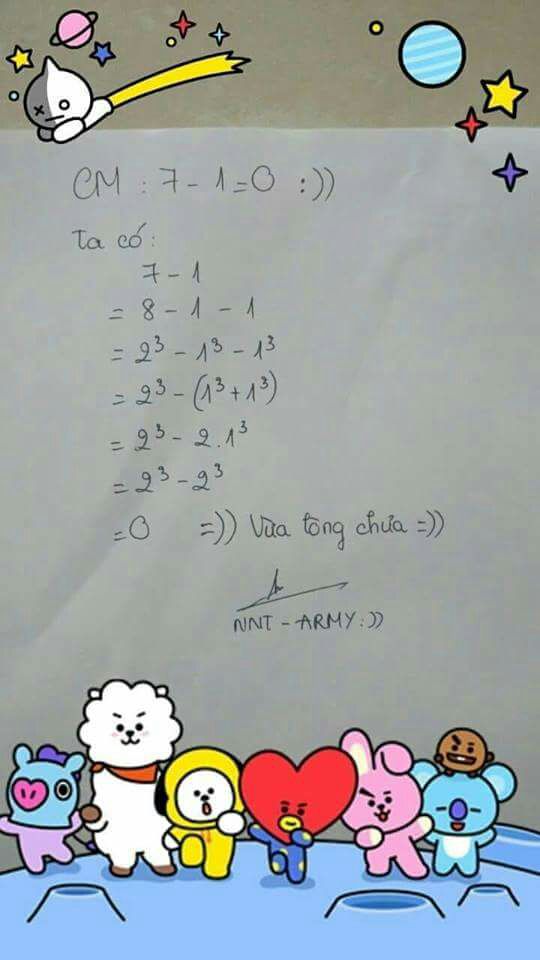 CM : 7 - 1 = 0 :))
Ta có:
7 - 1
= 8 - 1 - 1
= 2³ - 1³ - 1³
= 2³ - (1³ + 1³)
= 2³ - 2.1³
= 2³ - 2³
= 0 =)) Vừa lòng chưa =))
NNT - ARMY :))